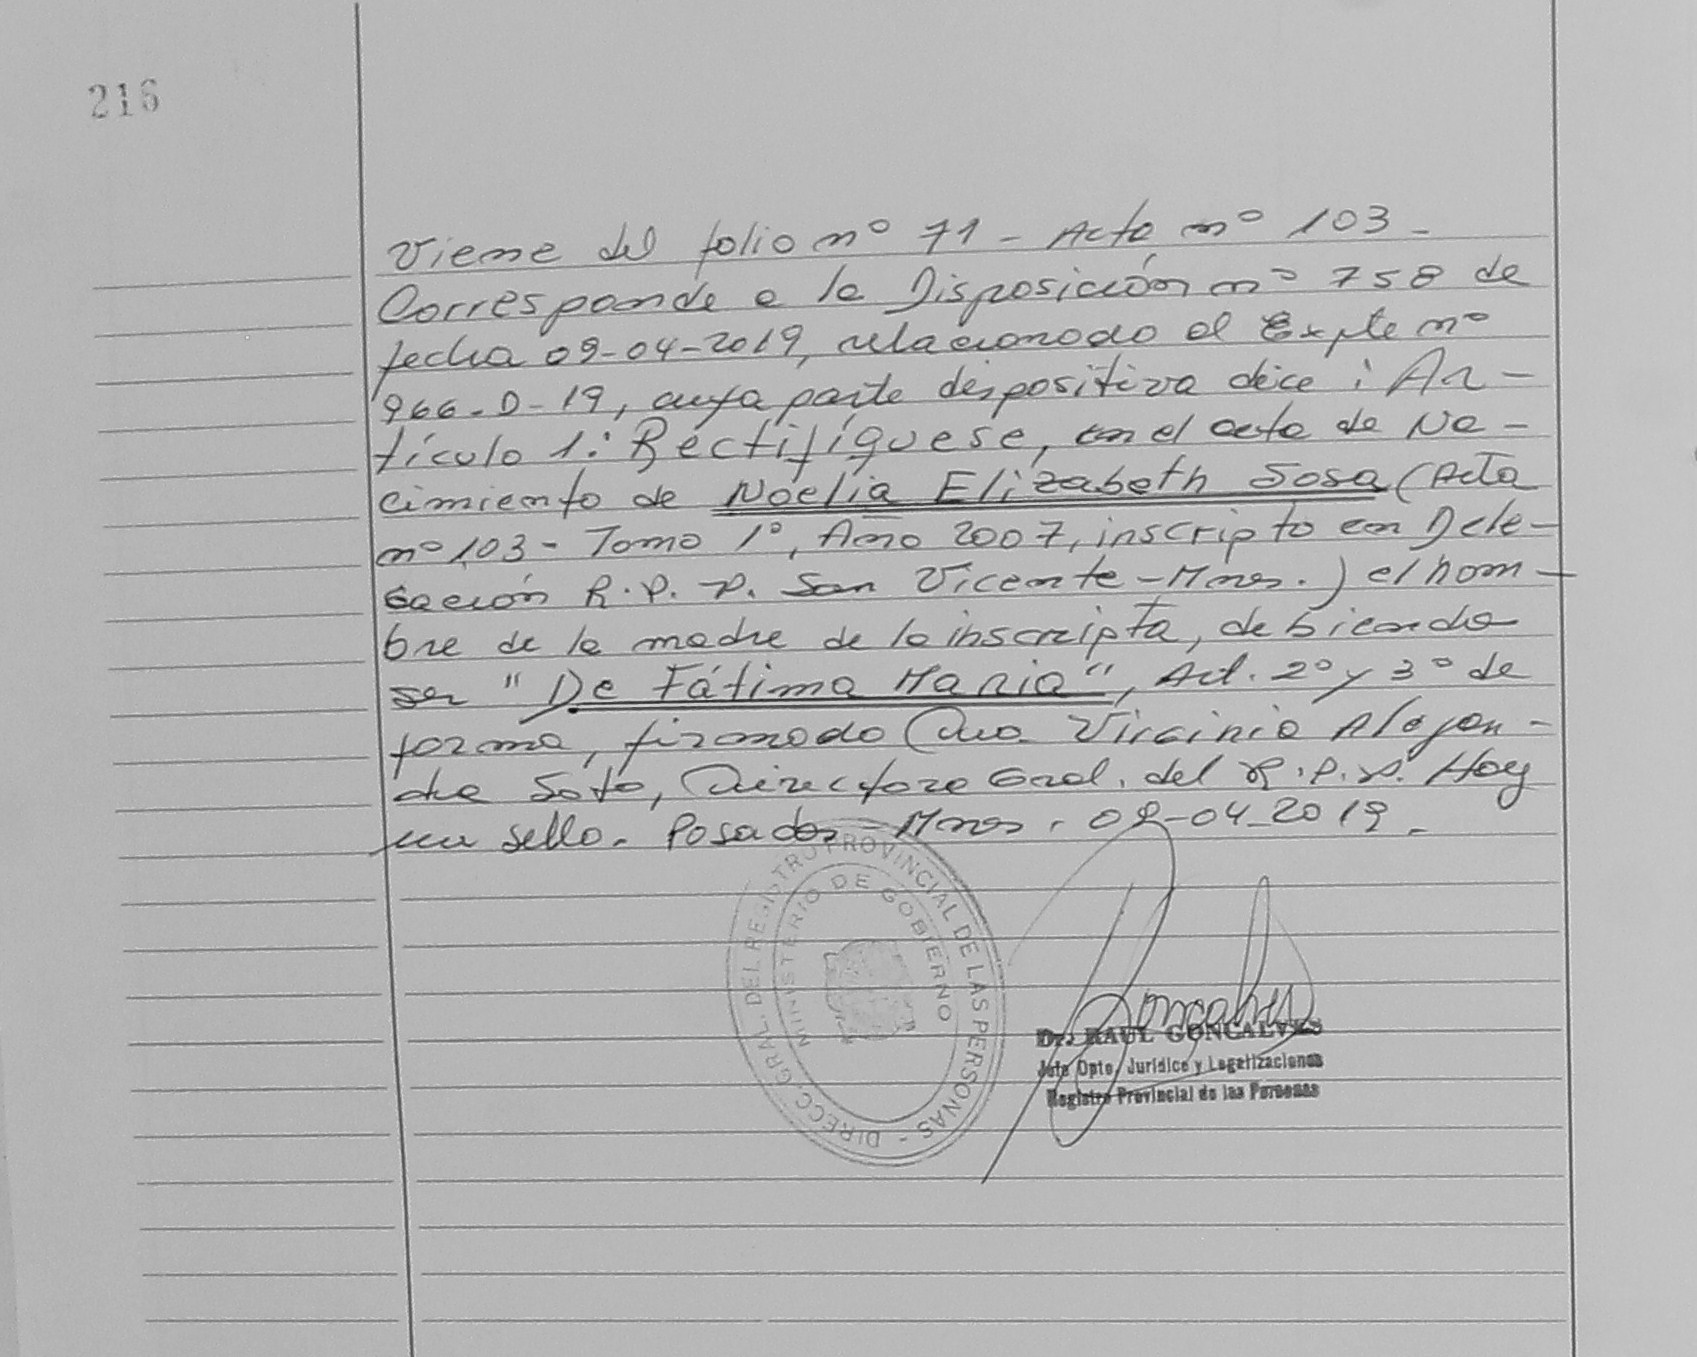 216
Viene del folio nº 71 - Acta nº 103 -
Corresponde a la Disposición nº 758 de
fecha 09-04-2019, relacionado al Expte nº
966-D-19, cuya parte dispositiva dice: Ar-
tículo 1: Rectifíquese, en el acta de Na-
cimiento de Noelia Elizabeth Sosa (Acta
nº 103 - Tomo 1º, Año 2007, inscripto en Dele-
gación R.P.P. San Vicente - Mnes.) el nom-
bre de la madre de la inscripta, debiendo
ser "De Fátima Maria", Art. 2º y 3º de
forma, firmado Dra. Virginia Alejan-
dra Soto, Directora Gral. del R.P.P. Hay
un sello. Posadas - Mnes. 09-04-2019.
DIRECC. GRAL. DEL REGISTRO PROVINCIAL DE LAS PERSONAS -
MINISTERIO DE GOBIERNO
Goncalves
Dr. RAUL GONCALVES
Jefe Dpto. Jurídico y Legalizaciones
Registro Provincial de las Personas